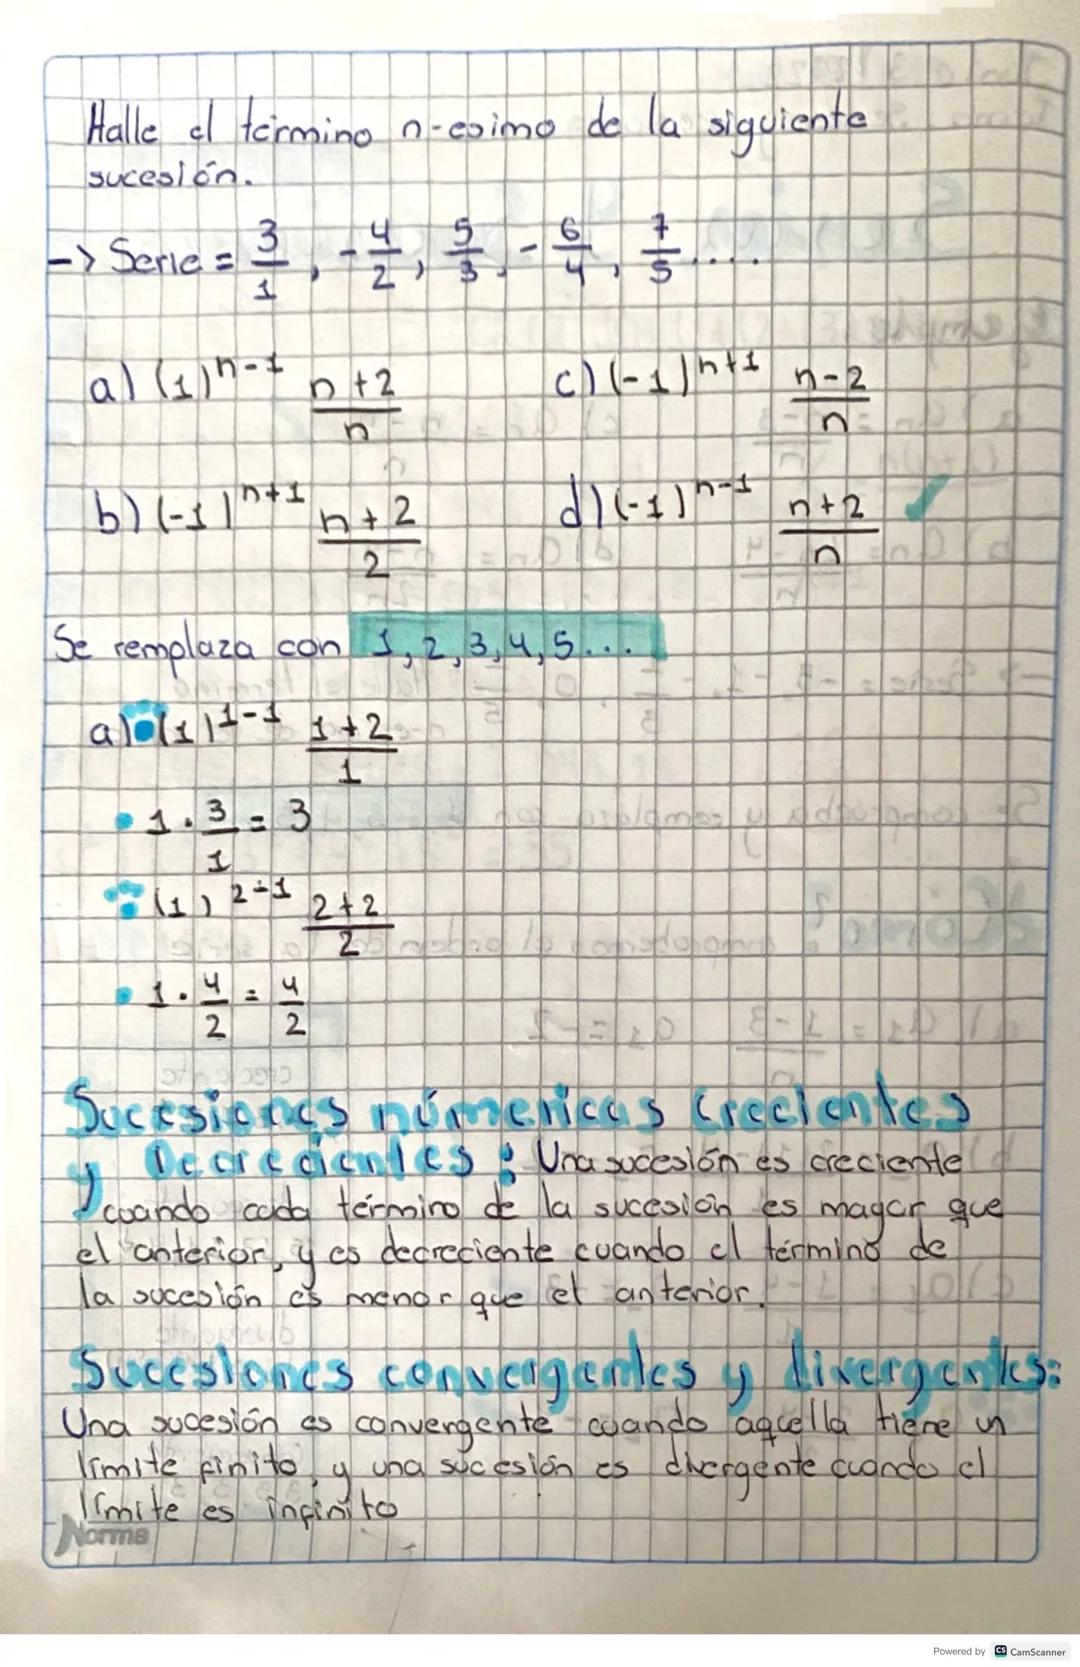 Halle el término n-esimo de la siguiente
sucesión.
-> Serie = 3/1, -4/2, 5/3, -6/4, 7/5....
a) (1)^n-1 n+2/n c) (-1)^n+1 n-2/n
b) (-1)^n+1 n+2/2 d) (-1)^n-1 n+2/n ✓
Se remplaza con 1, 2, 3, 4, 5...
a) • (1)^1-1 1+2/1
• 1 . 3/1 = 3
(1)^2-1 2+2/2
• 1 . 4/2 = 4/2
Sucesiones númericas Crecientes
y Decrecientes : Una sucesión es creciente
cuando cada término de la sucesión es mayor que
el anterior, y es decreciente cuando el término de
la sucesión es menor que el anterior.
Sucesiones convergentes y divergentes:
Una sucesión es convergente cuando aquella tiene un
límite finito, y una sucesión es divergente cuando el
límite es infinito
Norma
Powered by CS CamScanner